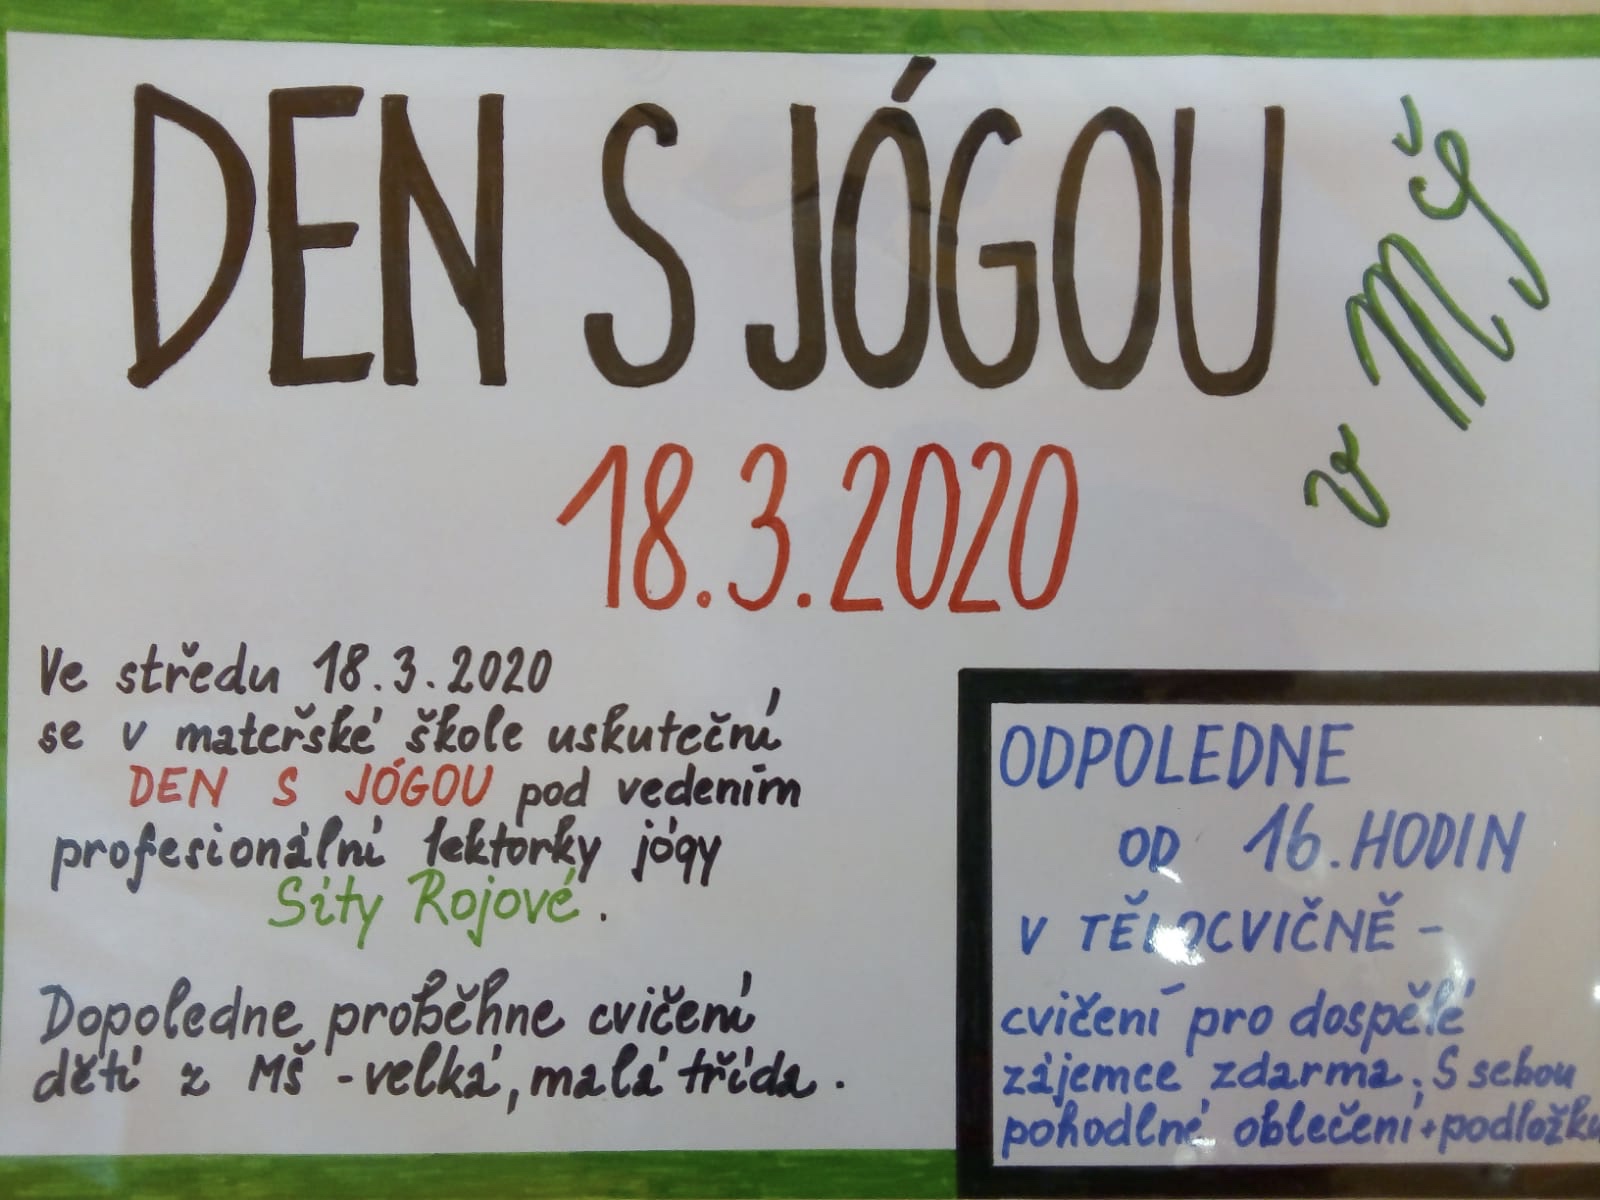 DEN S JÓGOU
v MŠ
18.3.2020
Ve středu 18.3.2020
se v mateřské škole uskuteční
DEN S JÓGOU pod vedením
profesionální lektorky jógy
Sity Rojové.
Dopoledne proběhne cvičení
dětí z MŠ - velká, malá třída.
ODPOLEDNE
OD 16.HODIN
V TĚLOCVIČNĚ -
cvičení pro dospělé
zájemce zdarma. S sebou
pohodlné oblečení + podložku